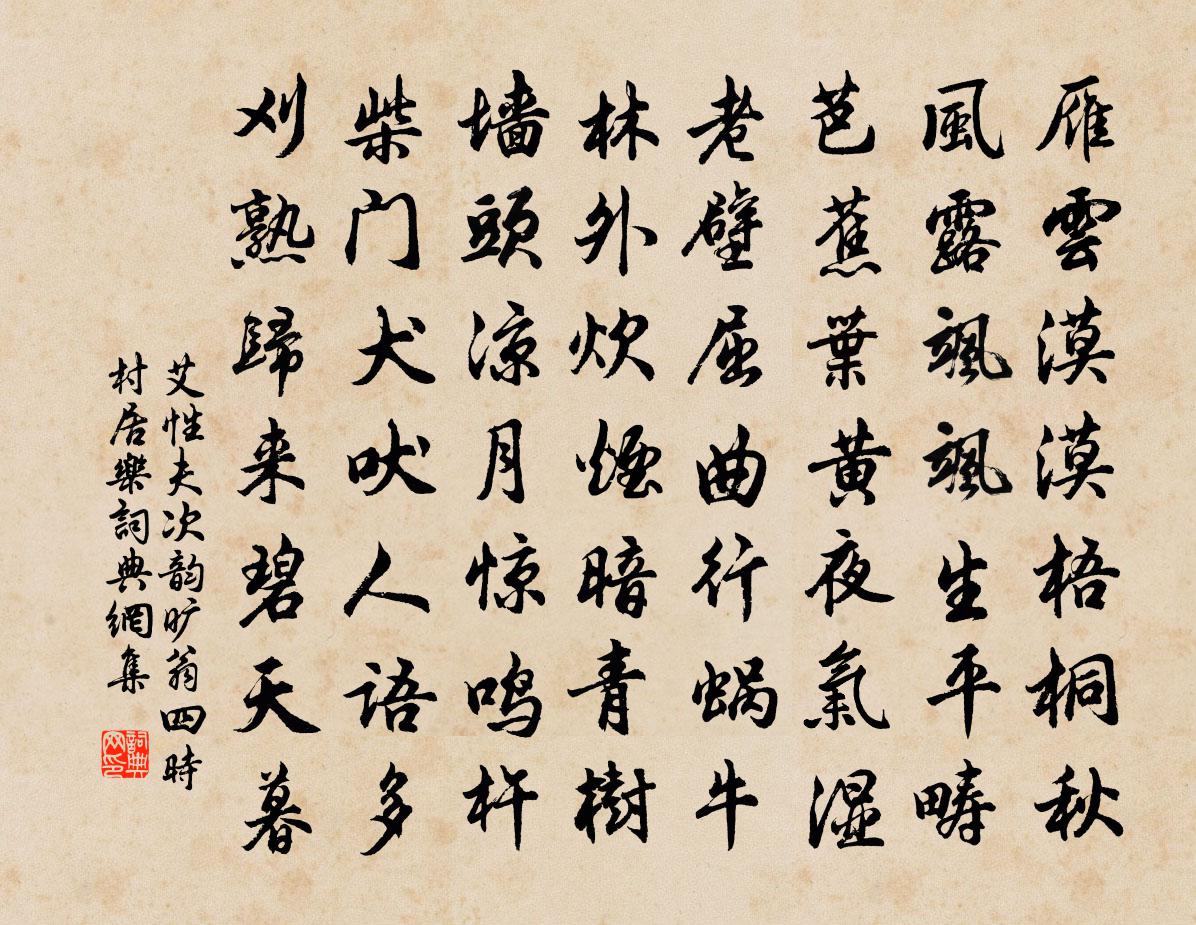 雁雲漠漠梧桐秋
風露颯颯生平疇
芭蕉葉黄夜氣湿
老壁屈曲行蜗牛
林外炊煙暗青樹
墙頭凉月惊鸣杵
柴门犬吠人语多
刈熟歸来碧天暮
艾性夫次韵旷翁四時
村居樂詞典網集
詞典
网印